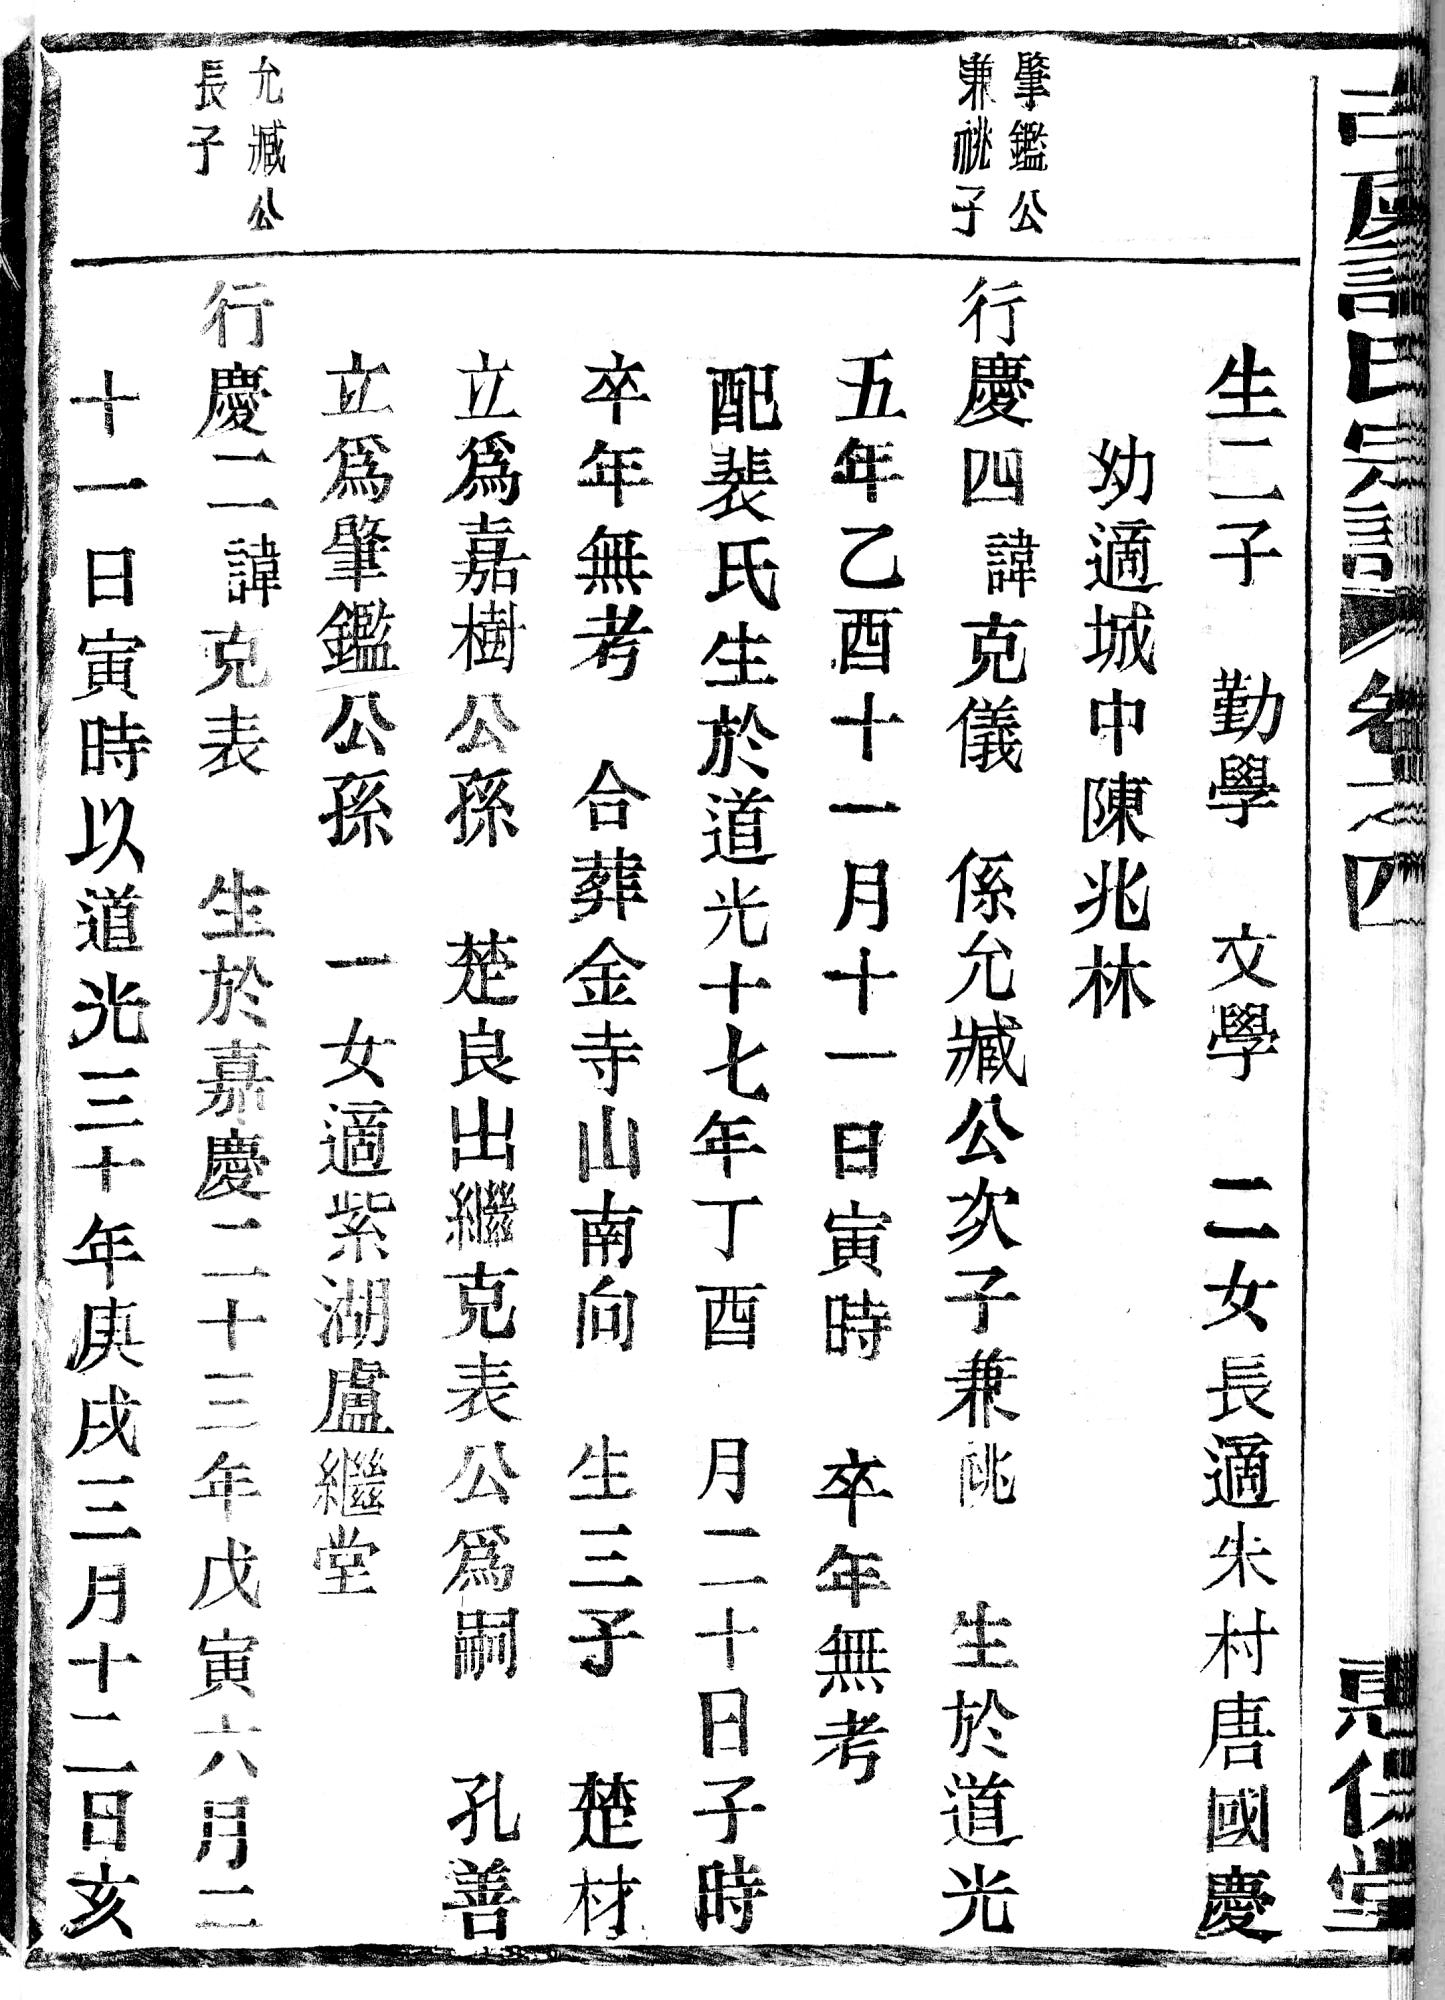 生二子　勤學　文學　二女長適朱村唐國慶
幼適城中陳兆林
肇鑑公
兼祧子
行慶四諱克儀　係允臧公次子兼祧　生於道光
五年乙酉十一月十一日寅時　卒年無考
配裴氏生於道光十七年丁酉　月二十日子時
卒年無考　合葬金寺山南向　生三子　楚材
立爲嘉樹公孫　楚良出繼克表公爲嗣　孔善
立爲肇鑑公孫　一女適紫湖盧繼堂
允臧公
長子
行慶二諱克表　生於嘉慶二十三年戊寅六月二
十一日寅時以道光三十年庚戌三月十二日亥
氏宗譜　卷之四